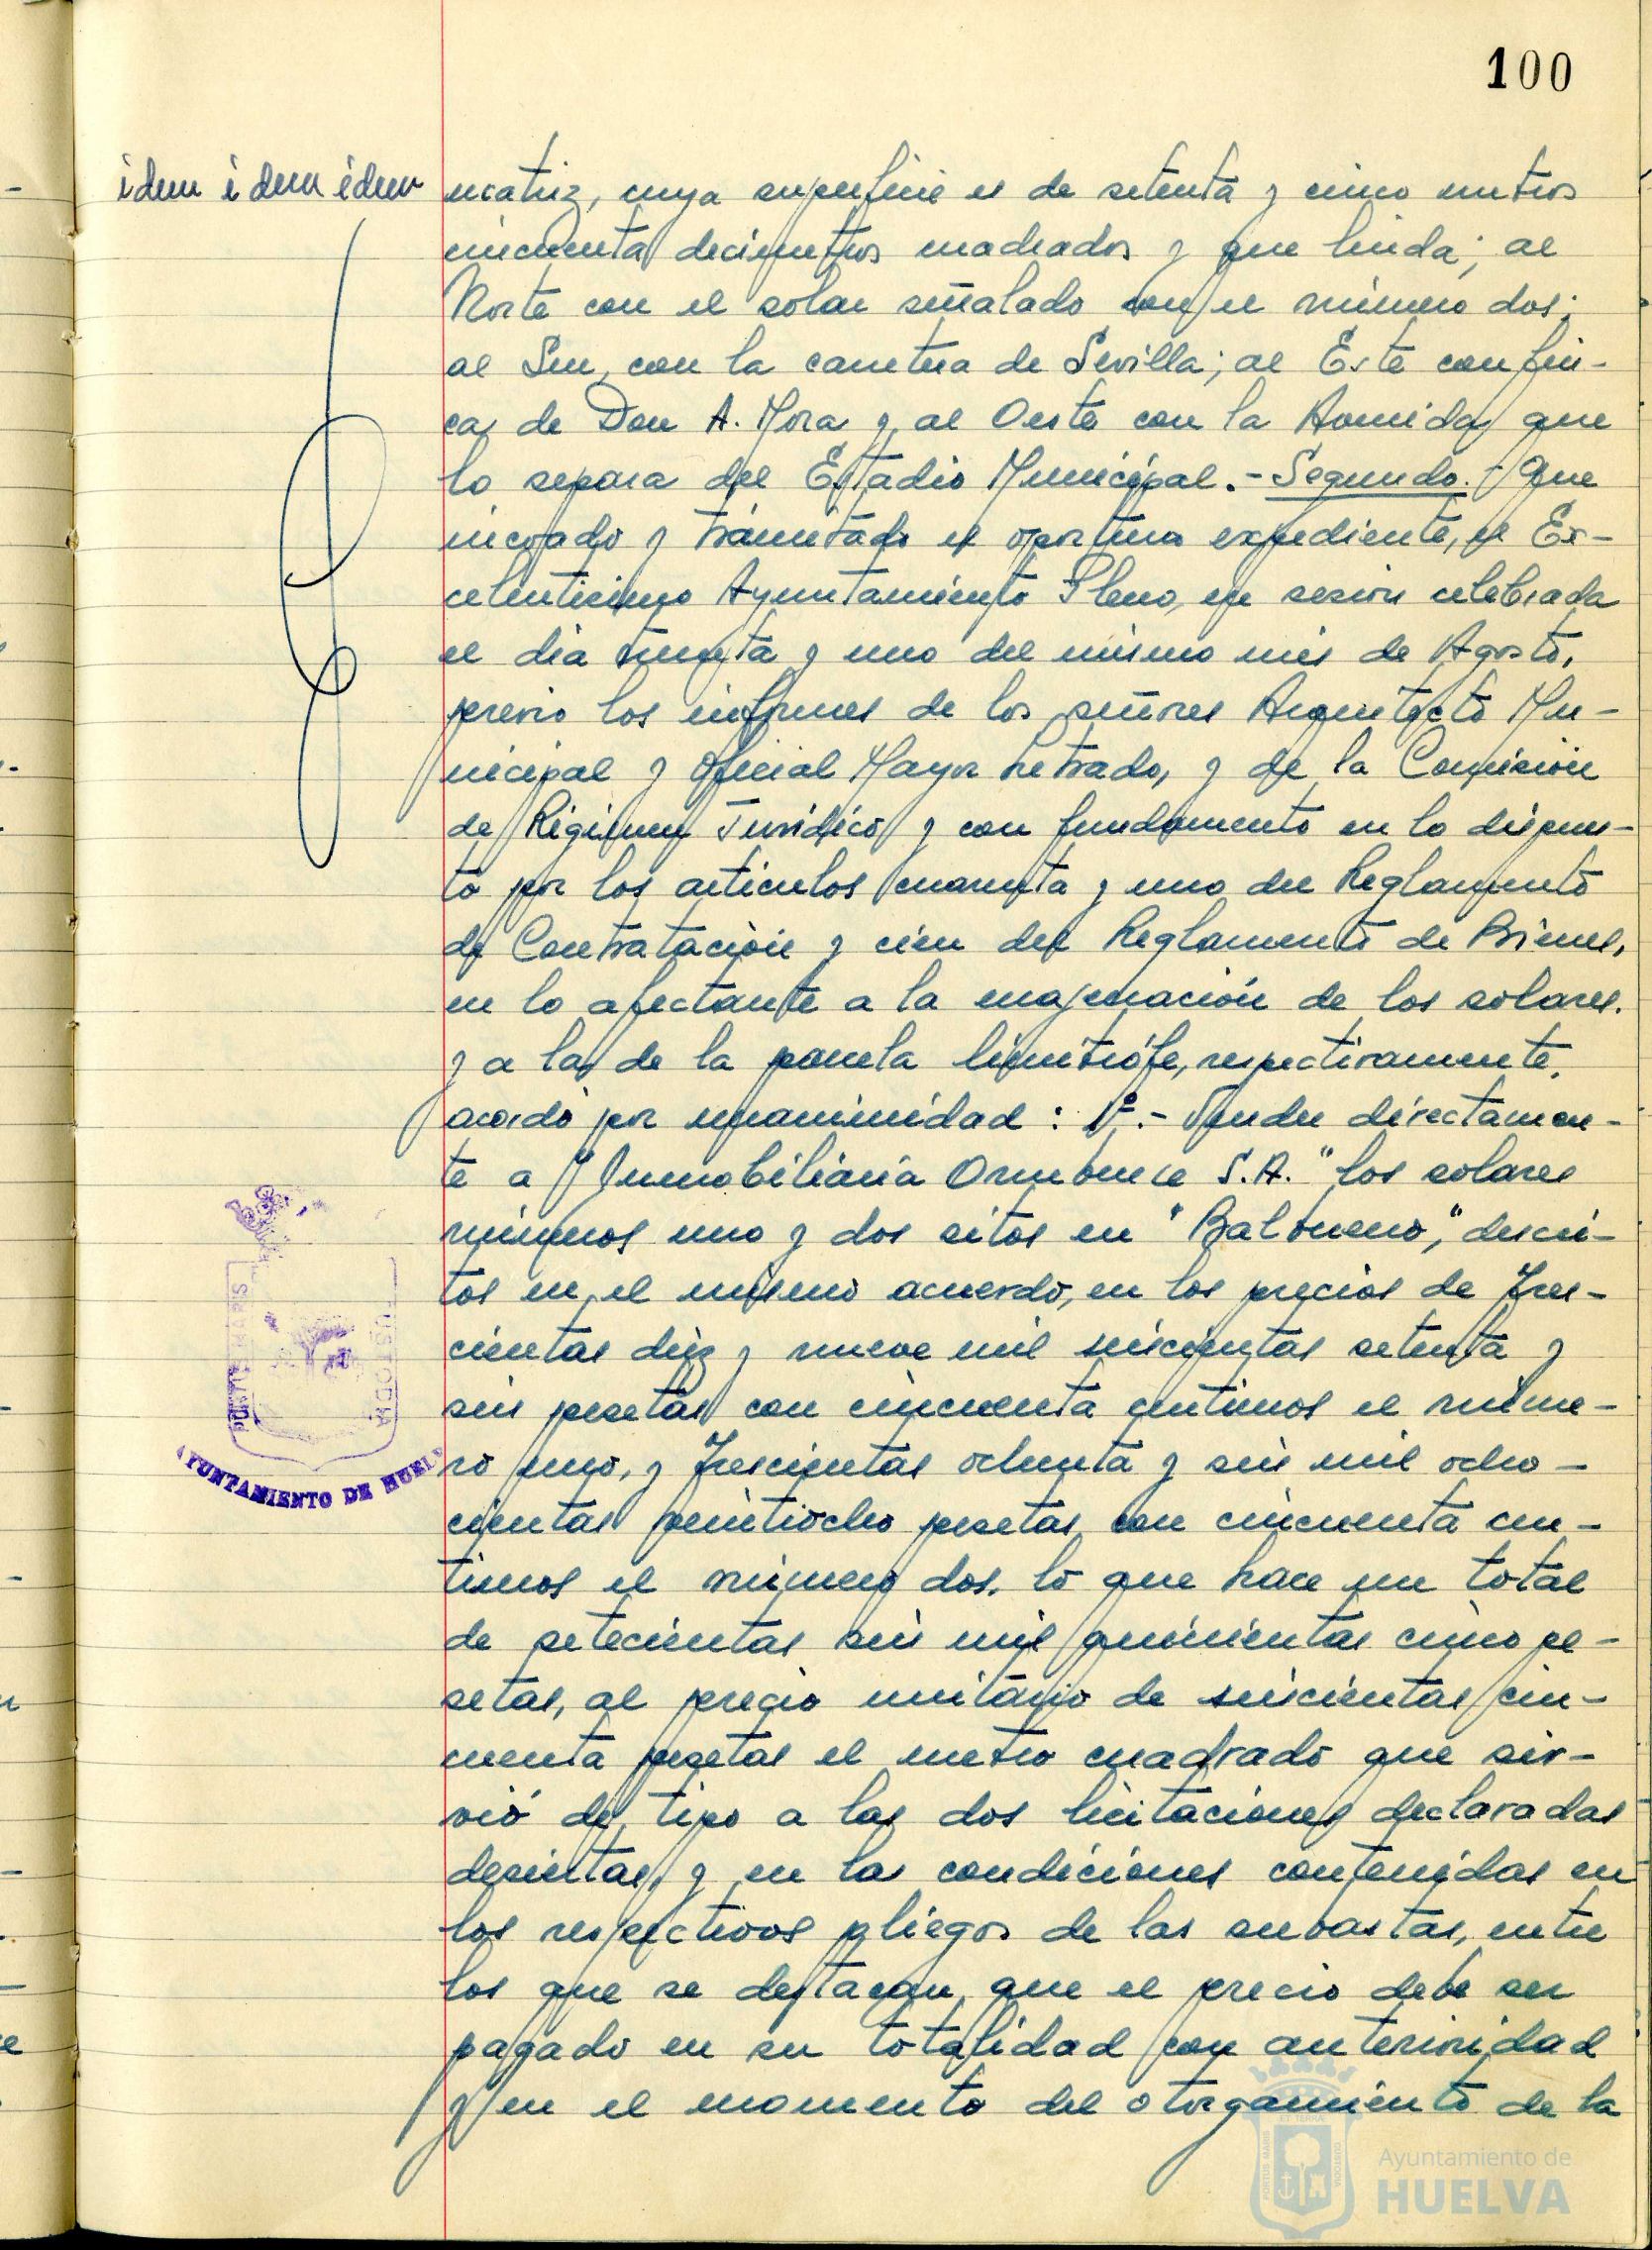 100
idem idem idem
matriz, cuya superficie es de setenta y cinco metros
cincuenta decimetros cuadrados y que linda; al
Norte con el solar señalado con el número dos;
al Sur, con la carretera de Sevilla; al Este con fin-
ca de Don A. Mora y al Oeste con la Avenida que
lo separa del Estadio Municipal.- Segundo.- Que
incoado y tramitado el oportuno expediente, el Ex-
celentisimo Ayuntamiento Pleno, en sesion celebrada
el dia treinta y uno del mismo mes de Agosto,
previo los informes de los señores Arquitecto Mu-
nicipal y Oficial Mayor Letrado, y de la Comision
de Régimen Juridico y con fundamento en lo dispues-
to por los articulos cuarenta y uno del Reglamento
de Contratación y cien del Reglamento de Bienes,
en lo afectante a la enajenación de los solares.
y a las de la parcela limitrófe, respectivamente,
acordó por unanimidad: 1º.- Vender directamen-
te a "Inmobiliaria Onubense S.A." los solares
números uno y dos sitos en "Balbueno", descri-
tos en el mismo acuerdo, en los precios de Tres-
cientas diez y nueve mil seiscientas setenta y
seis pesetas con cincuenta centimos el núme-
ro uno, y Trescientas ochenta y seis mil ocho-
cientas veintiocho pesetas con cincuenta cen-
timos el número dos, lo que hace un total
de setecientas seis mil quinientas cinco pe-
setas, al precio unitario de seiscientas cin-
cuenta pesetas el metro cuadrado que sir-
vió de tipo a las dos licitaciones declaradas
desiertas, y en las condiciones contenidas en
los respectivos pliegos de las subastas, entre
los que se destacan, que el precio debe ser
pagado en su totalidad con anterioridad
y en el momento del otorgamiento de la
PORTUS MARIS
CUSTODIA
AYUNTAMIENTO DE HUELV
Ayuntamiento de
HUELVA